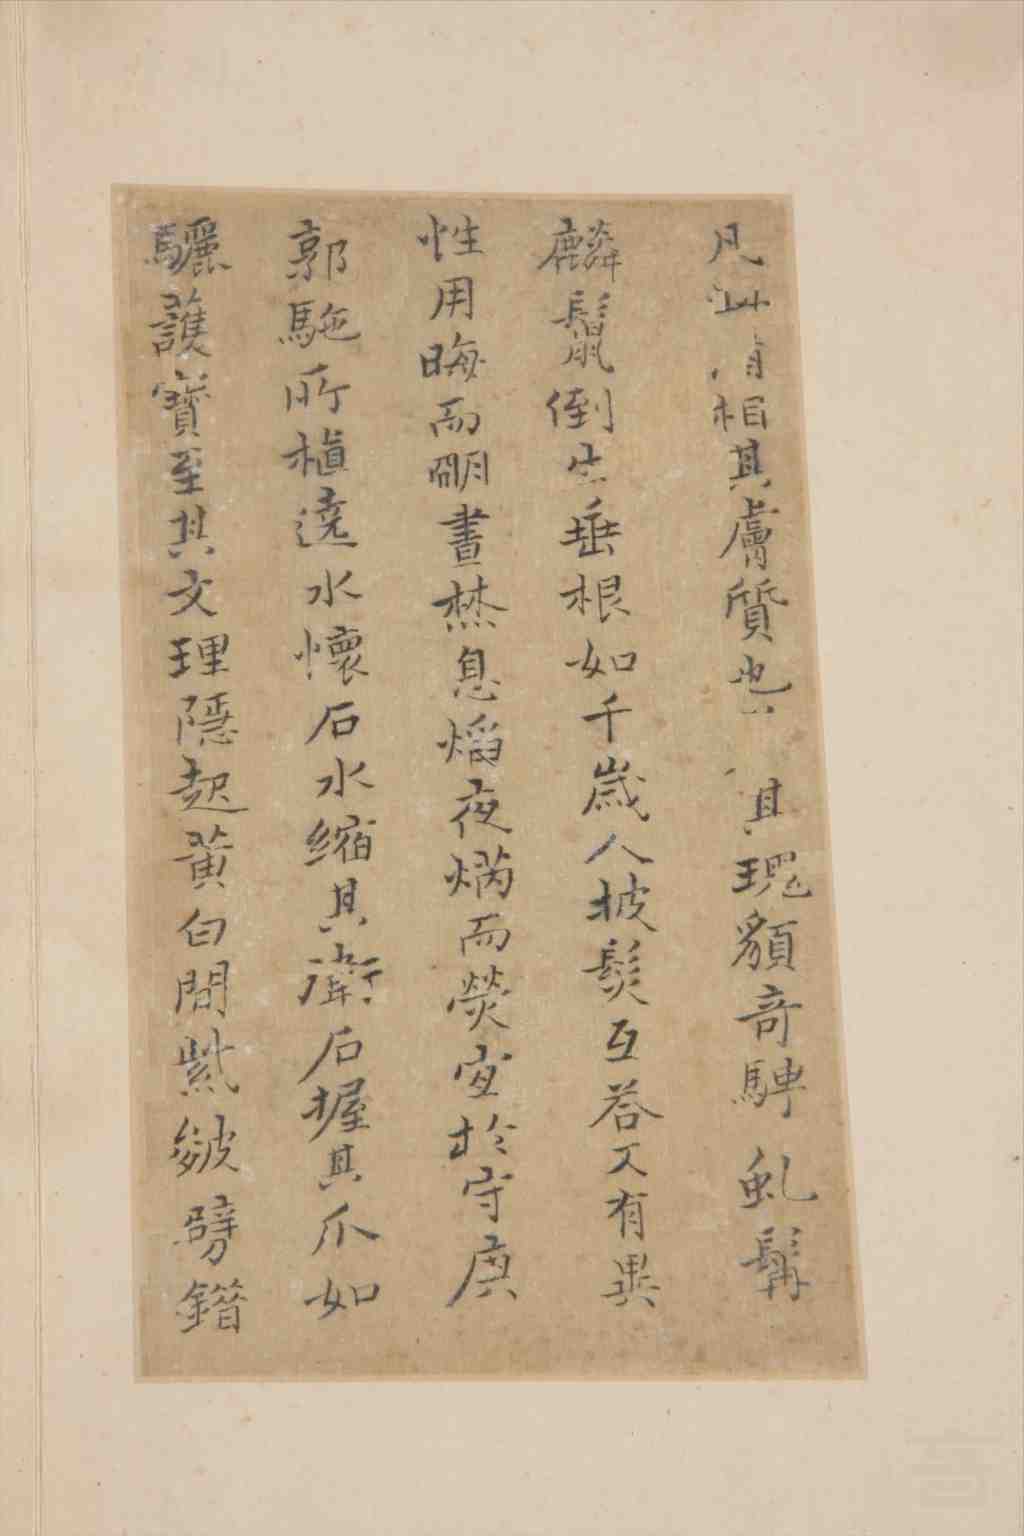 凡此皆相其膚質也其瑰額奇騂虬髯
麟鬣倒生垂根如千歲人披髮互荅又有異
性用晦而明晝焚息焰夜焫而熒宜於守庚
郭駞所植遶水懷石水縮其漘石握其爪如
驪護寶至其文理隱起黃白間紫皴劈錯